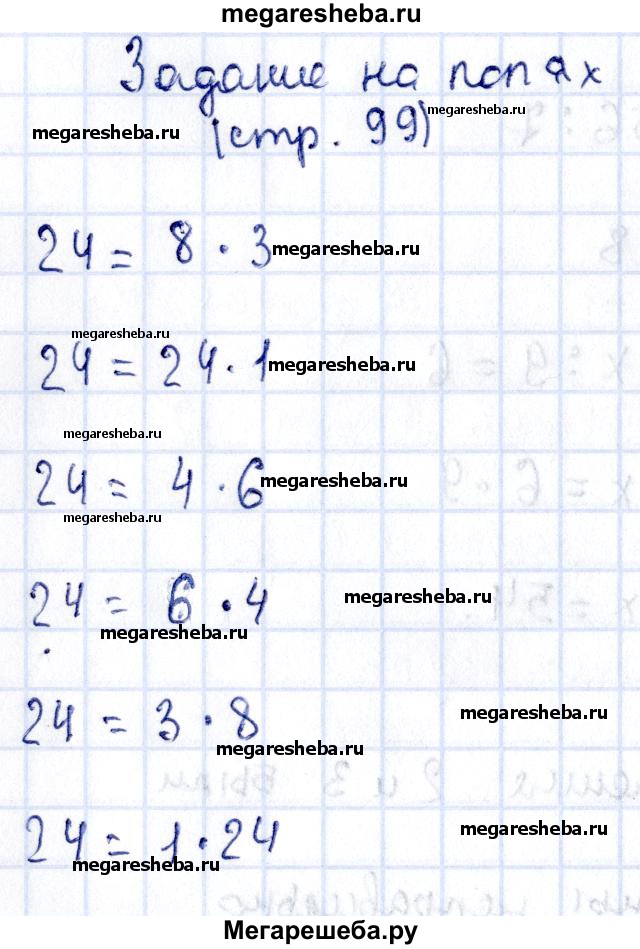 megaresheba.ru
Задание на полях
megaresheba.ru
megaresheba.ru
(стр. 99)
24 = 8 · 3
megaresheba.ru
megaresheba.ru
24 = 24 · 1
megaresheba.ru
megaresheba.ru
24 = 4 · 6
megaresheba.ru
megaresheba.ru
24 = 6 · 4
megaresheba.ru
megaresheba.ru
24 = 3 · 8
megaresheba.ru
megaresheba.ru
24 = 1 · 24
megaresheba.ru
megaresheba.ru
Мегарешеба.ру